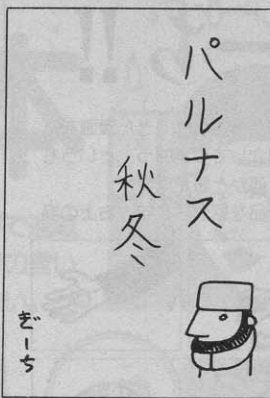 パルナス
秋冬
ぎーち